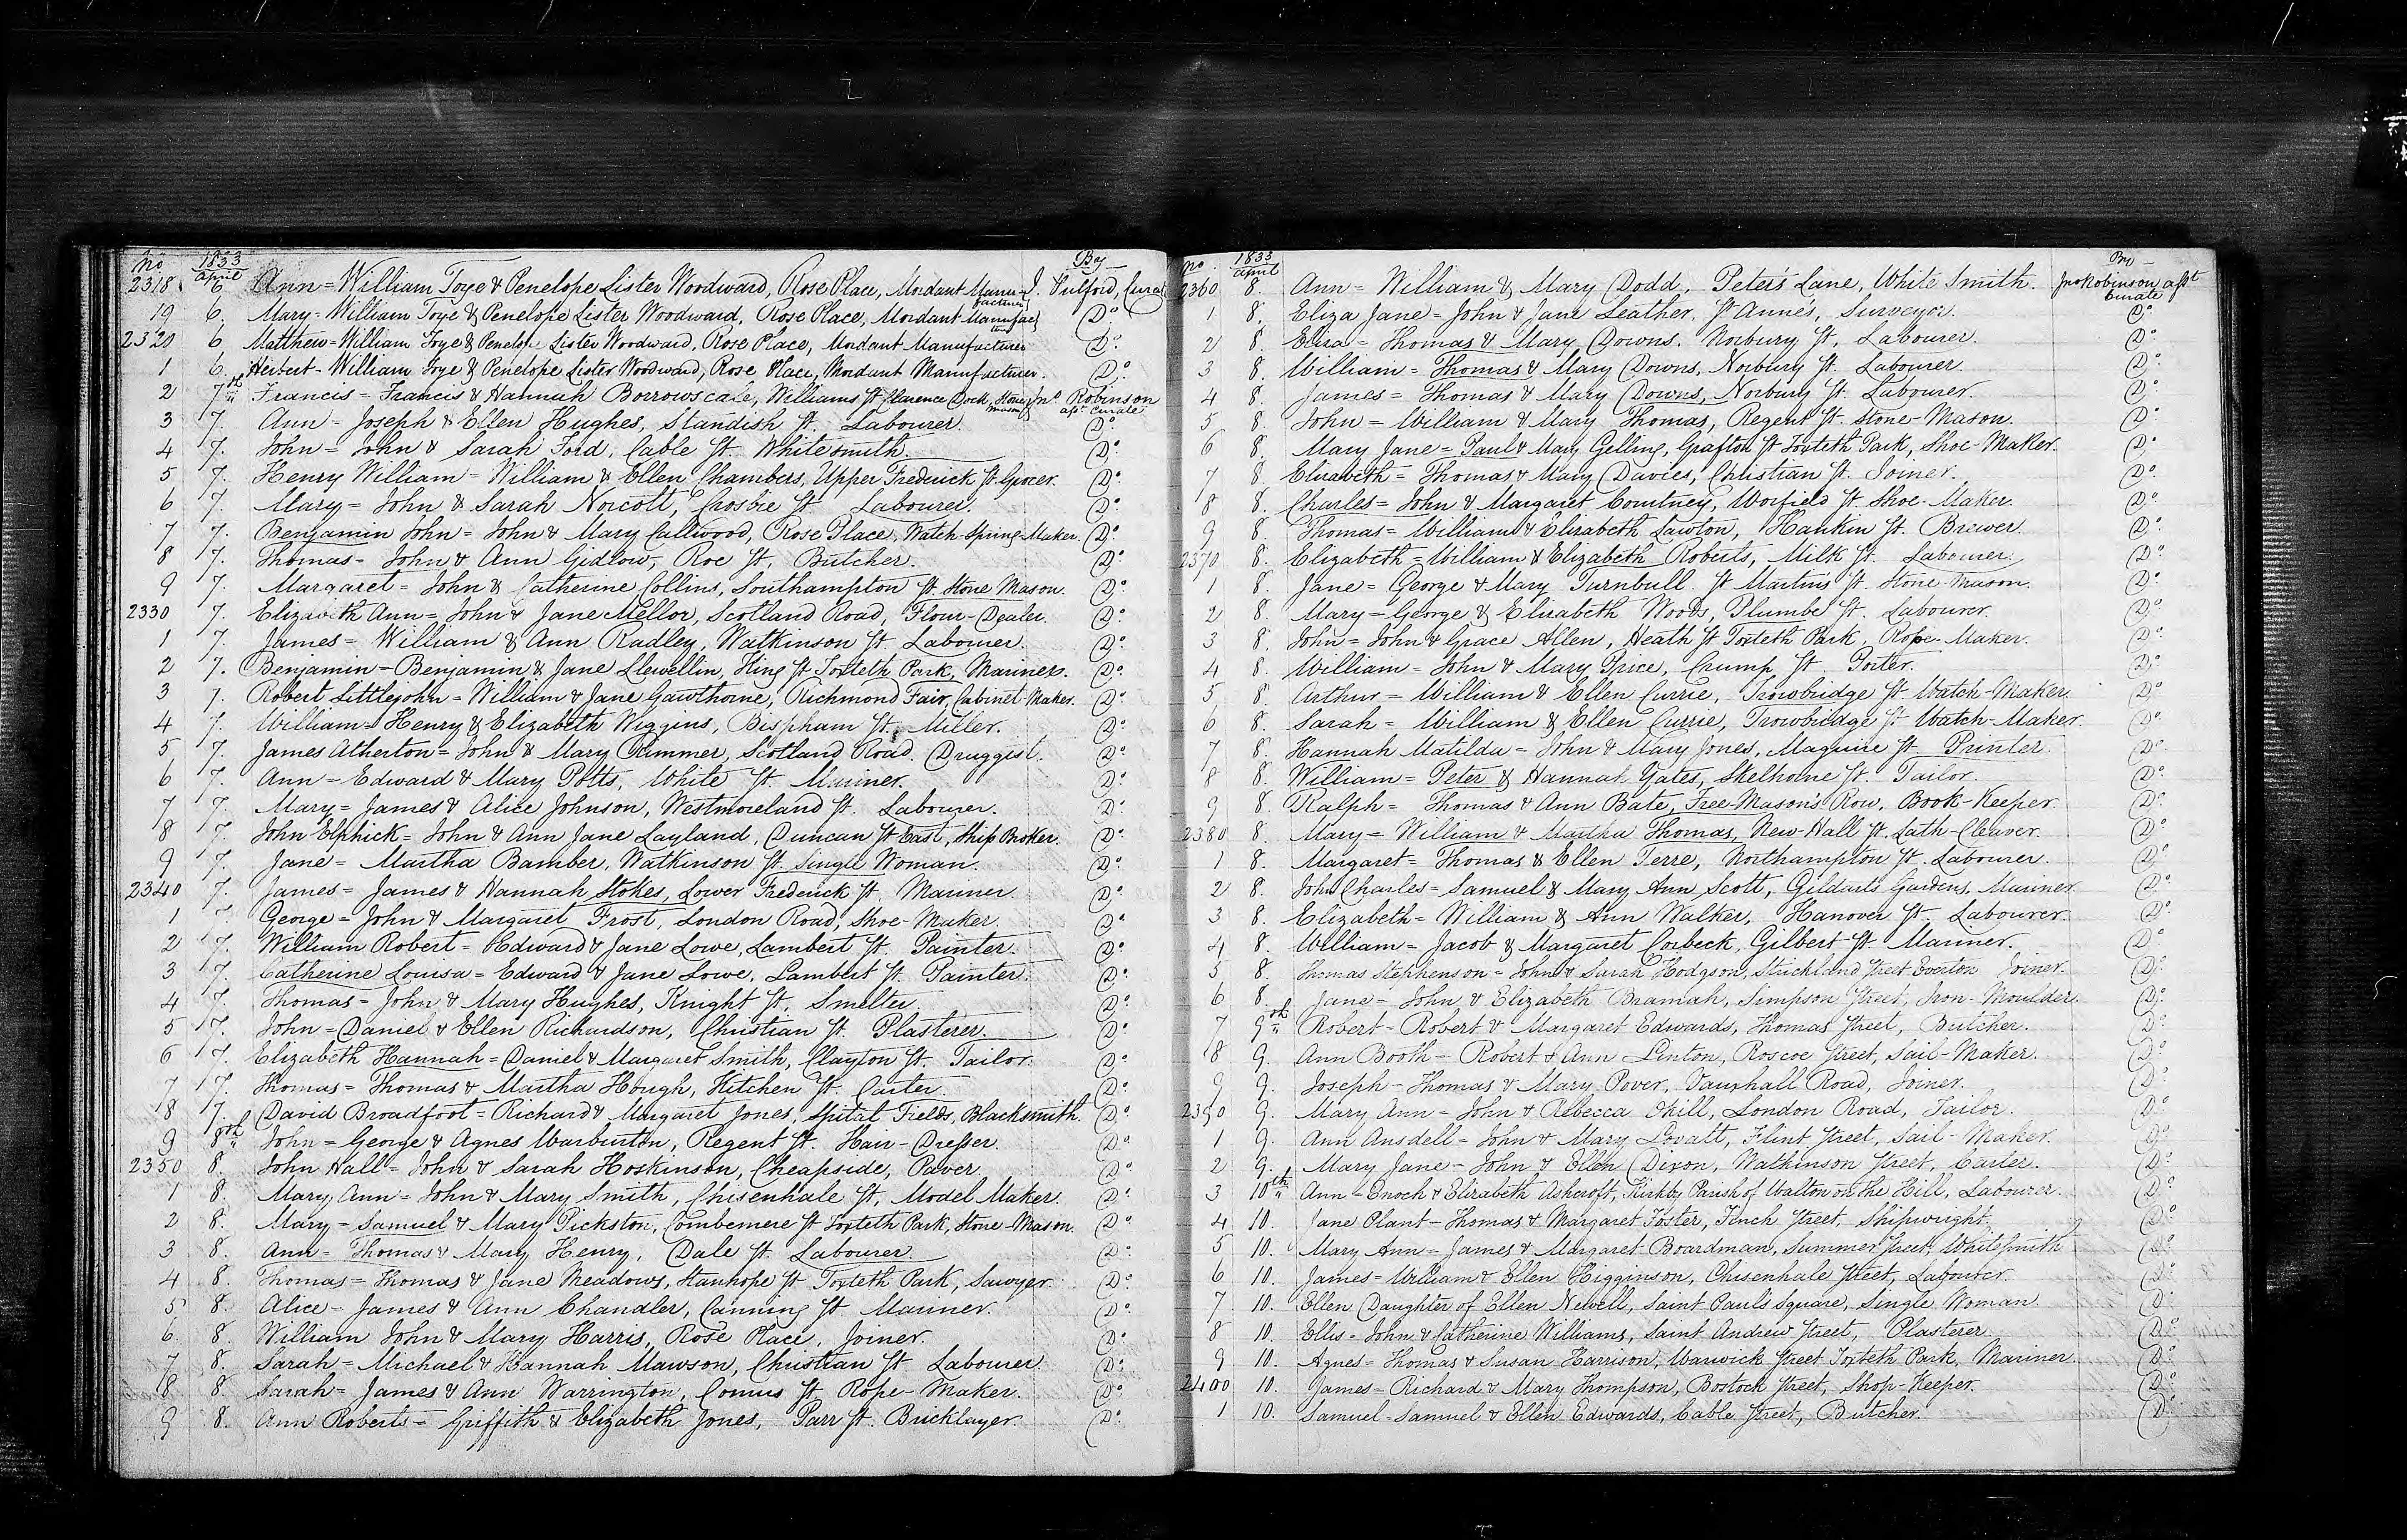 No 1833 April By
2318 6 Ann = William Toye & Penelope Lister Woodward, Rose Place, Mordant Manufacturer J. Pulford, Curate
19 6. Mary = William Toye & Penelope Lister Woodward, Rose Place, Mordant Manufacturer Do.
2320 6 Matthew = William Toye & Penelope Lister Woodward, Rose Place, Mordant Manufacturer Do.
1 6. Herbert - William Toye & Penelope Lister Woodward, Rose Place, Mordant Manufacturer. Do.
2 7th Francis = Francis & Hannah Borrowscale, Williams St. Clarence Dock, Stone mason Jno. Robinson asst. Curate
3 7. Ann = Joseph & Ellen Hughes, Standish St. Labourer. Do.
4 7. John = John & Sarah Ford, Cable St. Whitesmith. Do.
5 7. Henry William = William & Ellen Chambers, Upper Frederick St. Grocer. Do.
6 7. Mary = John & Sarah Norcott, Crosbie St. Labourer. Do.
7 7. Benjamin John = John & Mary Callwood, Rose Place, Watch-Spring-Maker. Do.
8 7. Thomas = John & Ann Gidlow, Roe St. Butcher. Do.
9 7. Margaret = John & Catherine Collins, Southampton St. Stone Mason. Do.
2330 7. Elizabeth Ann = John & Jane Mellor, Scotland Road, Flour-Dealer. Do.
1 7. James = William & Ann Radley, Watkinson St. Labourer. Do.
2 7. Benjamin = Benjamin & Jane Llewellin, King St. Toxteth Park, Mariner. Do.
3 7. Robert Littlejohn = William & Jane Gawthorne, Richmond Fair, Cabinet-Maker. Do.
4 7. William = Henry & Elizabeth Wiggins, Bispham St. Miller. Do.
5 7. James Atherton = John & Mary Rimmer, Scotland Road. Druggist. Do.
6 7. Ann = Edward & Mary Potts, White St. Mariner. Do.
7 7. Mary = James & Alice Johnson, Westmoreland St. Labourer. Do.
8 7. John Elphick = John & Ann Jane Layland, Duncan St. East, Ship Broker. Do.
9 7. Jane = Martha Bamber, Watkinson St. Single Woman. Do.
2340 7. James = James & Hannah Stokes, Lower Frederick St. Mariner. Do.
1 7. George = John & Margaret Frost, London Road, Shoe-Maker. Do.
2 7. William Robert = Edward & Jane Lowe, Lambert St. Painter. Do.
3 7. Catherine Louisa = Edward & Jane Lowe, Lambert St. Painter. Do.
4 7. Thomas = John & Mary Hughes, Knight St. Smelter. Do.
5 7. John = Daniel & Ellen Richardson, Christian St. Plasterer. Do.
6 7. Elizabeth Hannah = Daniel & Margaret Smith, Clayton St. Tailor. Do.
7 7. Thomas = Thomas & Martha Hough, Kitchen St. Carter. Do.
8 7. David Broadfoot = Richard & Margaret Jones, Spital Fields, Blacksmith. Do.
9 8th John = George & Agnes Warburton, Regent St. Hair-Dresser. Do.
2350 8. John Hall = John & Sarah Hoskinson, Cheapside, Paver. Do.
1 8. Mary Ann = John & Mary Smith, Chisenhale St. Model Maker. Do.
2 8. Mary = Samuel & Mary Pickston, Combemere St. Toxteth Park, Stone-Mason. Do.
3 8. Ann = Thomas & Mary Henry, Dale St. Labourer. Do.
4 8. Thomas = Thomas & Jane Meadows, Stanhope St. Toxteth Park, Sawyer. Do.
5 8. Alice - James & Ann Chandler, Canning St. Mariner. Do.
6 8. William John & Mary Harris, Rose Place, Joiner. Do.
7 8. Sarah = Michael & Hannah Mawson, Christian St. Labourer. Do.
8 8. Sarah = James & Ann Warrington, Comus St. Rope-Maker. Do.
9 8. Ann Roberts = Griffith & Elizabeth Jones, Parr St. Bricklayer. Do.
No. 1833 April By
2360 8. Ann = William & Mary Dodd, Peter's Lane, White Smith. Jno Robinson asst. Curate
1 8. Eliza Jane = John & Jane Leather, St. Anne's, Surveyor. Do.
2 8. Eliza = Thomas & Mary Downs. Norbury St. Labourer. Do.
3 8. William = Thomas & Mary Downs, Norbury St. Labourer. Do.
4 8. James = Thomas & Mary Downs, Norbury St. Labourer. Do.
5 8. John = William & Mary Thomas, Regent St. Stone-Mason. Do.
6 8. Mary Jane = Paul & Mary Gelling, Grafton St. Toxteth Park, Shoe-Maker. Do.
7 8. Elizabeth = Thomas & Mary Davies, Christian St. Joiner. Do.
8 8. Charles = John & Margaret Courtney, Worfield St. Shoe-Maker. Do.
9 8. Thomas = William & Elizabeth Lawton, Hankin St. Brewer. Do.
2370 8. Elizabeth = William & Elizabeth Roberts, Milk St. Labourer. Do.
1 8. Jane = George & Mary Turnbull. St. Martins St. Stone-Mason. Do.
2 8. Mary = George & Elizabeth Woods, Plumbe St. Labourer. Do.
3 8. John = John & Grace Allen, Heath St. Toxteth Park, Rope-Maker. Do.
4 8. William = John & Mary Price, Crump St. Porter. Do.
5 8. Arthur = William & Ellen Currie, Trowbridge St. Watch-Maker. Do.
6 8. Sarah = William & Ellen Currie, Trowbridge St. Watch-Maker. Do.
7 8. Hannah Matilda = John & Mary Jones, Maguire St. Printer. Do.
8 8. William = Peter & Hannah Yates, Skelhorne St. Tailor. Do.
9 8. Ralph = Thomas & Ann Bate, Free-Mason's Row, Book-Keeper. Do.
2380 8. Mary = William & Martha Thomas, New-Hall St. Lath-Cleaver. Do.
1 8. Margaret = Thomas & Ellen Terre, Northampton St. Labourer. Do.
2 8. John Charles = Samuel & Mary Ann Scott, Gildart's Gardens, Mariner. Do.
3 8. Elizabeth = William & Ann Walker, Hanover St. Labourer. Do.
4 8. William = Jacob & Margaret Corbeck, Gilbert St. Mariner. Do.
5 8. Thomas Stephenson = John & Sarah Hodgson, Strickland Street Everton Joiner. Do.
6 8. Jane = John & Elizabeth Bramah, Simpson Street, Iron-Moulder. Do.
7 9th Robert = Robert & Margaret Edwards, Thomas Street, Butcher. Do.
8 9. Ann Booth = Robert & Ann Linton, Roscoe Street, Sail-Maker. Do.
9 9. Joseph - Thomas & Mary Pover, Vauxhall Road, Joiner. Do.
2390 9. Mary Ann - John & Rebecca Okill, London Road, Tailor. Do.
1 9. Ann Ansdell = John & Mary Lovatt, Flint Street, Sail-Maker. Do.
2 9. Mary Jane - John & Ellen Dixon, Watkinson Street, Carter. Do.
3 10th Ann - Enoch & Elizabeth Ashcroft, Kirkby Parish of Walton on the Hill, Labourer. Do.
4 10. Jane Plant - Thomas & Margaret Foster, Finch Street, Shipwright. Do.
5 10. Mary Ann - James & Margaret Boardman, Summer Street, WhiteSmith Do.
6 10. James = William & Ellen Higginson, Chisenhale Street, Labourer. Do.
7 10. Ellen Daughter of Ellen Newell, Saint Paul's Square, Single Woman. Do.
8 10. Ellis = John & Catherine Williams, Saint Andrew Street, Plasterer. Do.
9 10. Agnes = Thomas & Susan Harrison, Warwick Street Toxteth Park, Mariner. Do.
2400 10. James = Richard & Mary Thompson, Bostock Street, Shop-Keeper. Do.
1 10. Samuel = Samuel & Ellen Edwards, Cable Street, Butcher. Do.